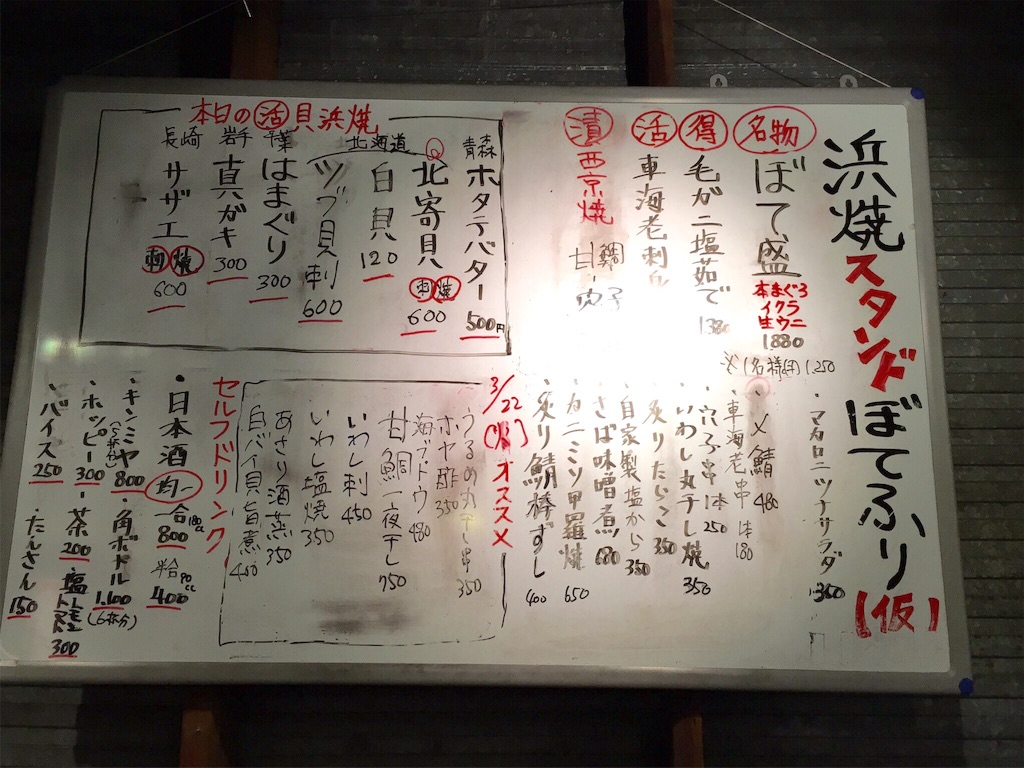 浜焼スタンドぼてふり【仮】
名物 ぼて盛
本まぐろ
イクラ
生ウニ
1880
得 毛ガニ塩茹で 1380
活 車海老刺身
漬 西京焼 甘鯛
本日の活貝浜焼
青森 ホタテバター 500円
北海道
北寄貝 刺 焼 600
白貝 120
ツブ貝刺 600
千葉 はまぐり 300
岩手 真ガキ 300
長崎 サザエ 刺 焼 600
・マカロニツナサラダ 350
・〆鯖 480
・車海老串 1本 180
・穴子串 1本 250
・いわし丸干し焼 350
・炙りたらこ 350
・自家製塩から 350
・さば味噌煮 180
・カニミソ甲羅焼 650
・炙り鯖棒ずし 400
3/22(火)オススメ
・うるめ丸干し串 350
・ホヤ酢 350
海ブドウ 480
甘鯛一夜干し 750
いわし刺 450
・いわし塩焼 350
あさり酒蒸 350
白バイ貝旨煮 400
セルフドリンク
・日本酒 均一 一合 180cc 800 半合 90cc 400
・キンミヤ 800
・角ボトル 1,100 (6杯分)
・ホッピー 300
・茶 200
・塩トマト 300
・バイス 250
・たんさん 150